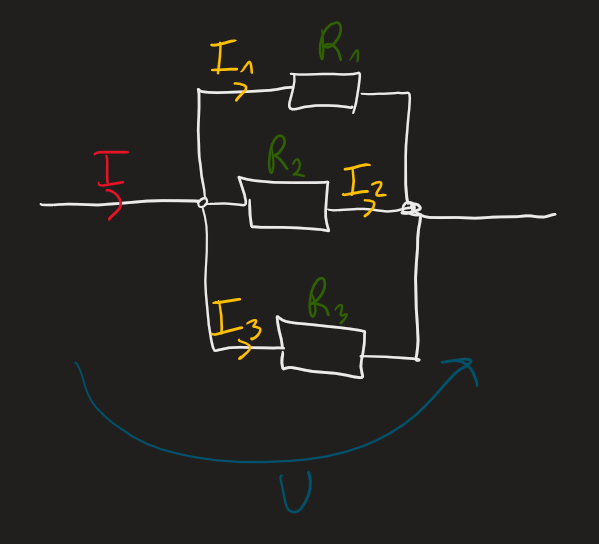 I₁
R₁
I
R₂
I₂
I₃
R₃
U